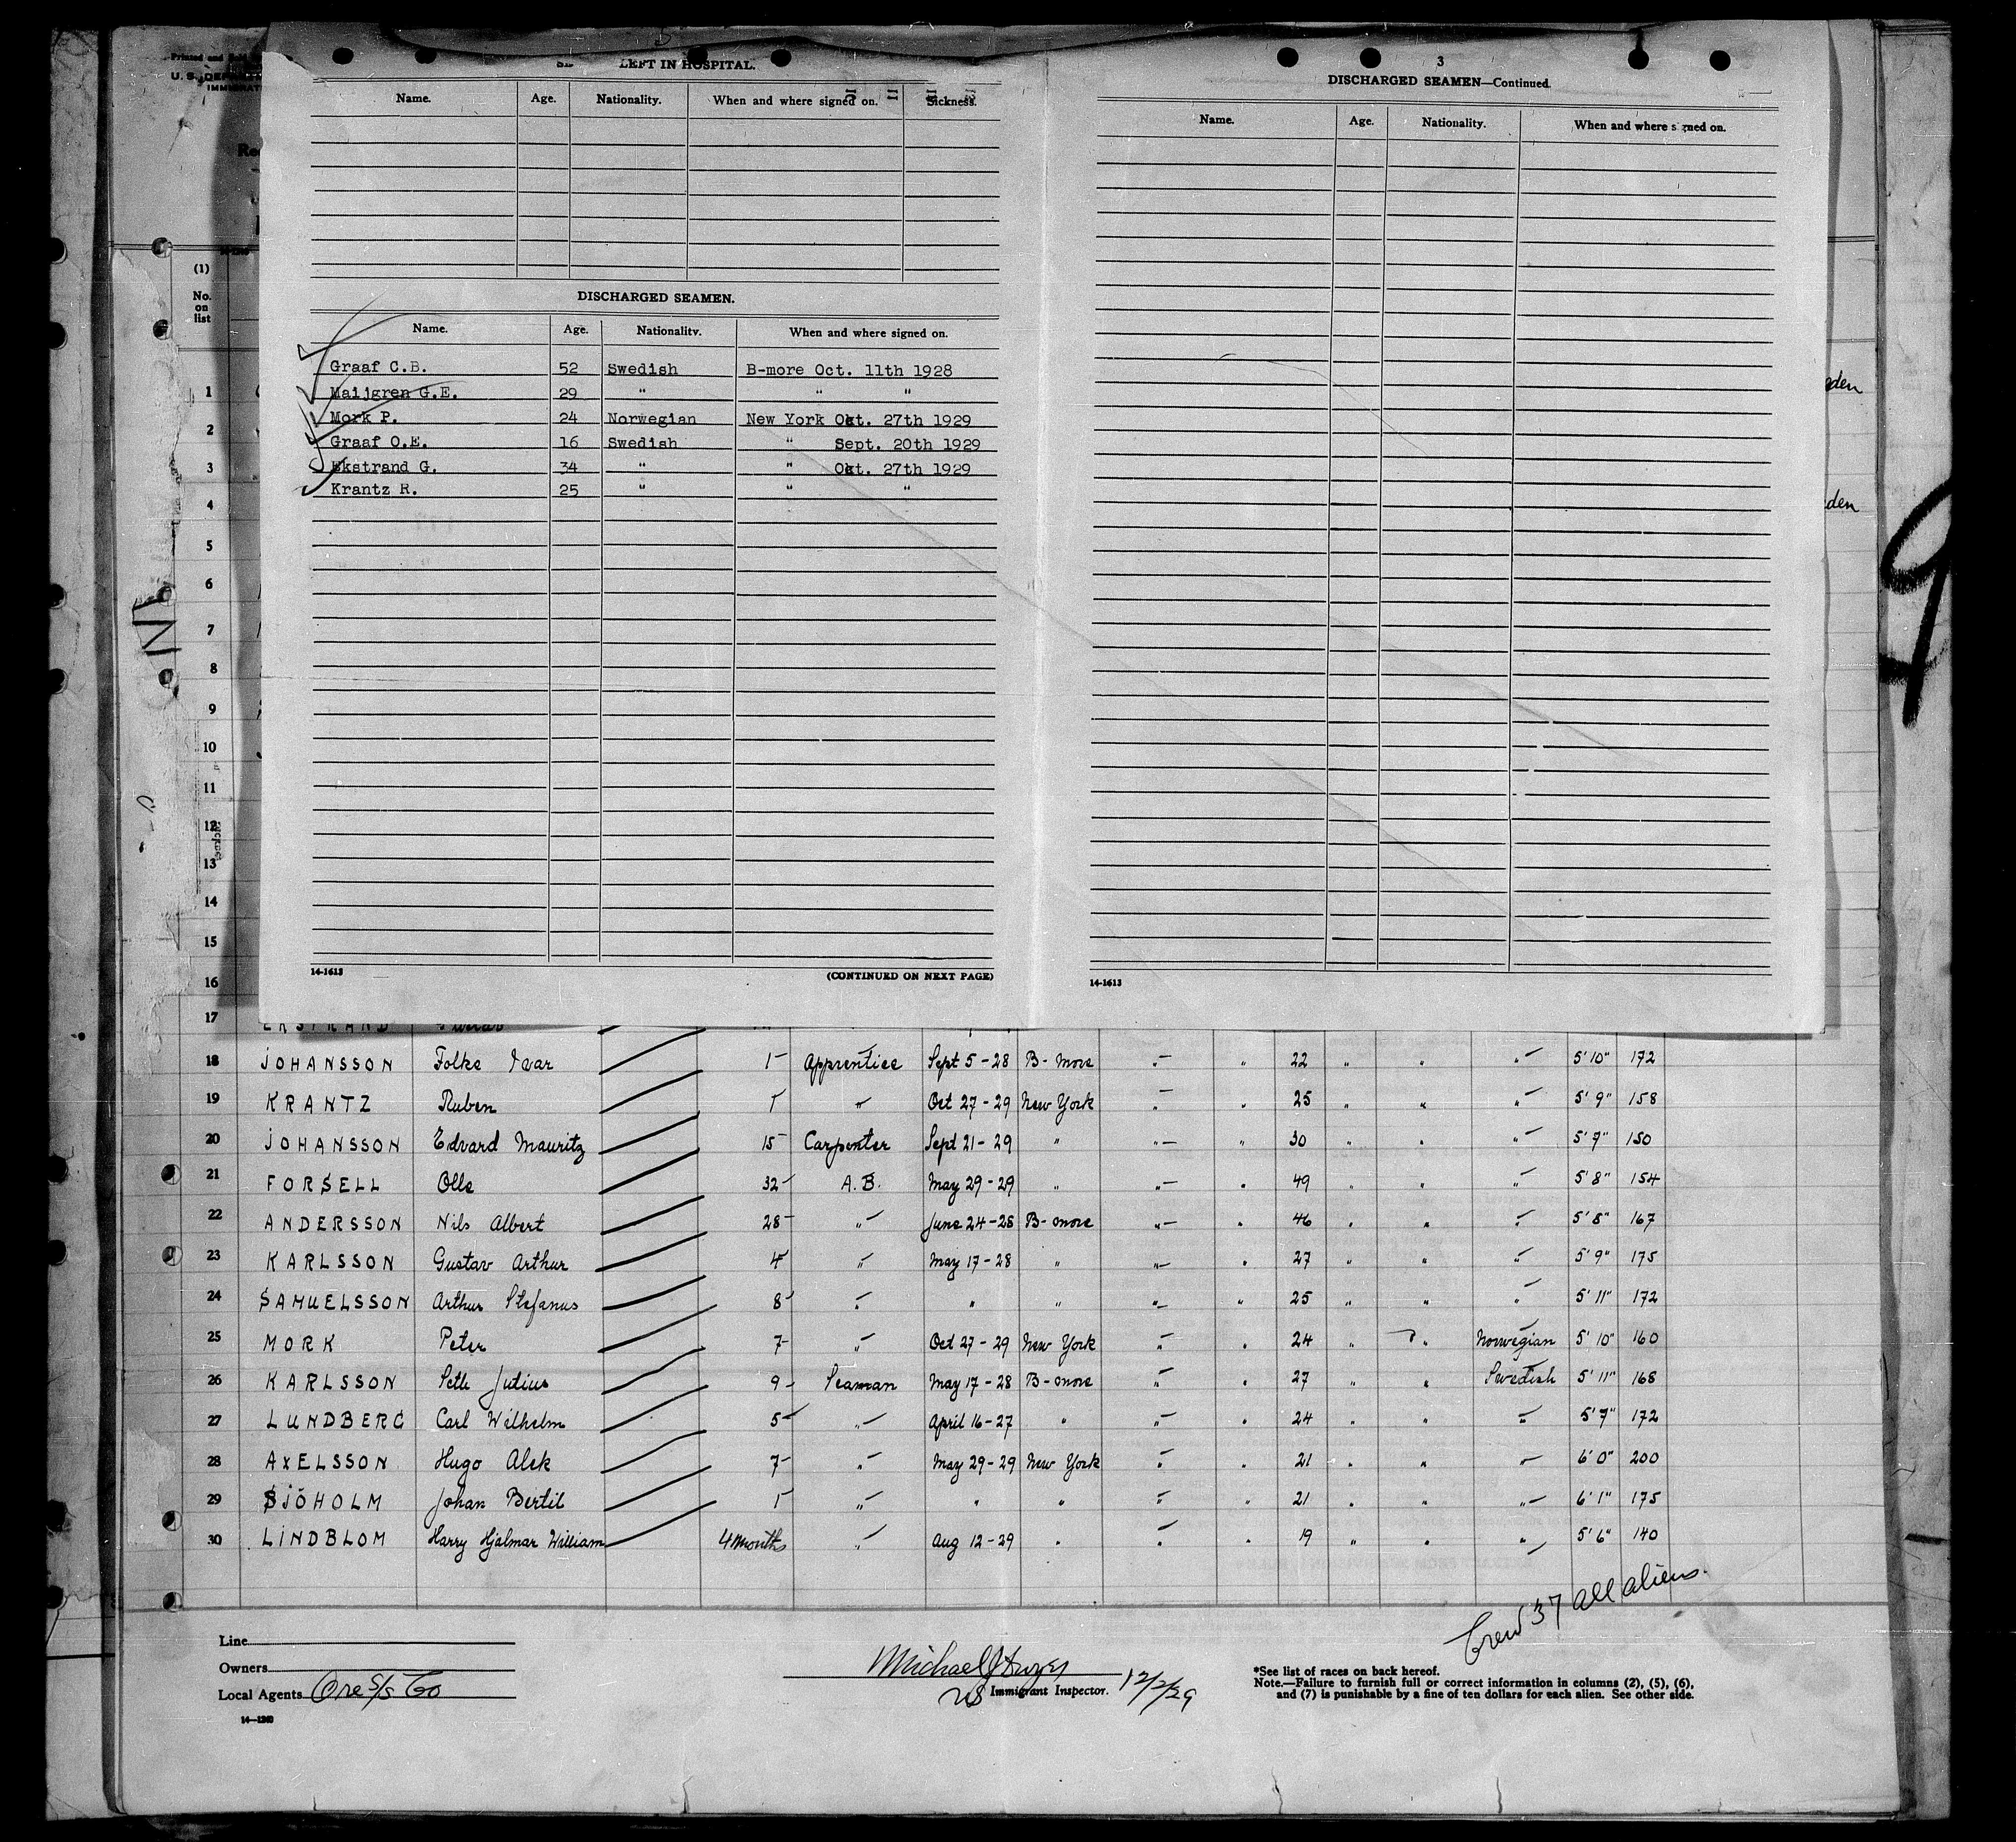 LEFT IN HOSPITAL.
Name. Age. Nationality. When and where signed on. Sickness.
DISCHARGED SEAMEN.
Name. Age. Nationality. When and where signed on.
Graaf C.B. 52 Swedish B-more Oct. 11th 1928
Maijgren G.E. 29 " " "
Mork P. 24 Norwegian New York Oct. 27th 1929
Graaf O.E. 16 Swedish " Sept. 20th 1929
Ekstrand G. 34 " " Oct. 27th 1929
Krantz R. 25 " " "
14-1613 (CONTINUED ON NEXT PAGE)
3
DISCHARGED SEAMEN—Continued.
Name. Age. Nationality. When and where signed on.
14-1613
Printed and
U. S. DEPART
IMMIGRAT
(1)
No.
on
list
1 eden
2
3
4 eden
5
6
7
8
9
10
11
12
13
14
15
16
17 EKSTRAND
18 JOHANSSON Folke Ivar 1 Apprentice Sept 5-28 B-more " " 22 " " " 5'10" 172
19 KRANTZ Ruben 1 " Oct 27-29 New York " " 25 " " " 5'9" 158
20 JOHANSSON Edvard Mauritz 15 Carpenter Sept 21-29 " " " 30 " " " 5'7" 150
21 FORSELL Olle 32 A.B. May 29-29 " " " 49 " " " 5'8" 154
22 ANDERSSON Nils Albert 28 " June 24-28 B-more " " 46 " " " 5'8" 167
23 KARLSSON Gustav Arthur 4 " May 17-28 " " " 27 " " " 5'9" 175
24 SAMUELSSON Arthur Stefanus 8 " " " " " 25 " " " 5'11" 172
25 MORK Peter 7 " Oct 27-29 New York " " 24 " " Norwegian 5'10" 160
26 KARLSSON Seth Julius 9 Seaman May 17-28 B-more " " 27 " " Swedish 5'11" 168
27 LUNDBERG Carl Wilhelm 5 " April 16-27 " " " 24 " " " 5'7" 172
28 AXELSSON Hugo Alek 7 " May 29-29 New York " " 21 " " " 6'0" 200
29 SJÖHOLM Johan Bertil 1 " " " " " 21 " " " 6'1" 175
30 LINDBLOM Harry Hjalmar William 4 Months " Aug 12-29 " " " 19 " " " 5'6" 140
Crew 37 all aliens.
Line
Owners
Local Agents Ore S/S Co
14—1240
Michael J
US Immigrant Inspector. 12/2/29
*See list of races on back hereof.
Note.—Failure to furnish full or correct information in columns (2), (5), (6),
and (7) is punishable by a fine of ten dollars for each alien. See other side.
9